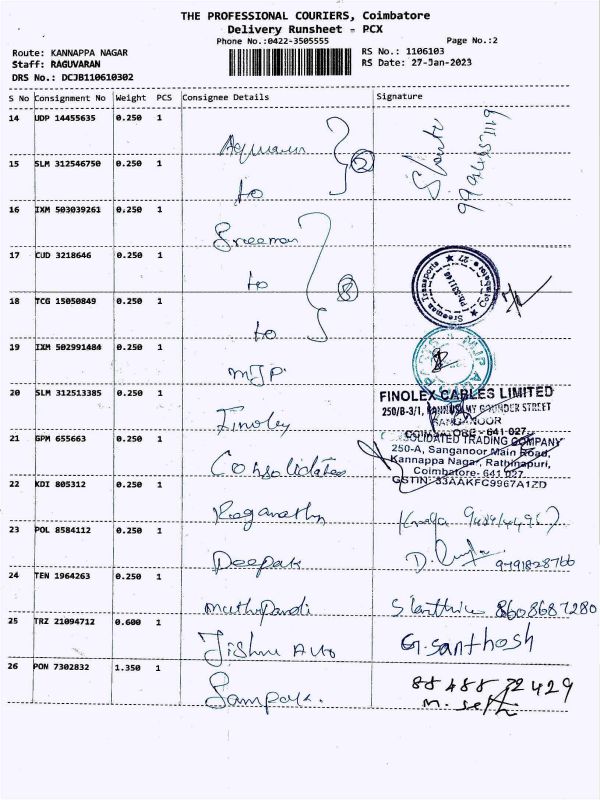 THE PROFESSIONAL COURIERS, Coimbatore
Delivery Runsheet - PCX
Phone No.:0422-3505555
Page No.:2
Route: KANNAPPA NAGAR
RS No.: 1106103
Staff: RAGUVARAN
RS Date: 27-Jan-2023
DRS No.: DCJB110610302
S No Consignment No Weight PCS Consignee Details Signature
14 UDP 14455635 0.250 1
15 SLM 312546750 0.250 1 to 2
16 IXM 503039261 0.250 1 Sreeman
17 CUD 3218646 0.250 1 to
18 TCG 15050849 0.250 1 to 3
19 IXM 502991484 0.250 1 MJP
20 SLM 312513385 0.250 1 Finolex
FINOLEX CABLES LIMITED
250/B-3/1, STREET
SANGANOOR
COIMBATORE - 641 027
21 GPM 655663 0.250 1 Consolidated
CONSOLIDATED TRADING COMPANY
250-A, Sanganoor Main Road,
Kannappa Nagar, Rathinapuri,
Coimbatore- 641 027
GSTIN: 33AAKFC9967A1ZD
22 KDI 805312 0.250 1
23 POL 8584112 0.250 1 Deepak 9791828766
24 TEN 1964263 0.250 1 muthupandi 8608687280
25 TRZ 21094712 0.600 1 Jishnu Auto G. Santhosh
26 PON 7302832 1.350 1 88488 22429